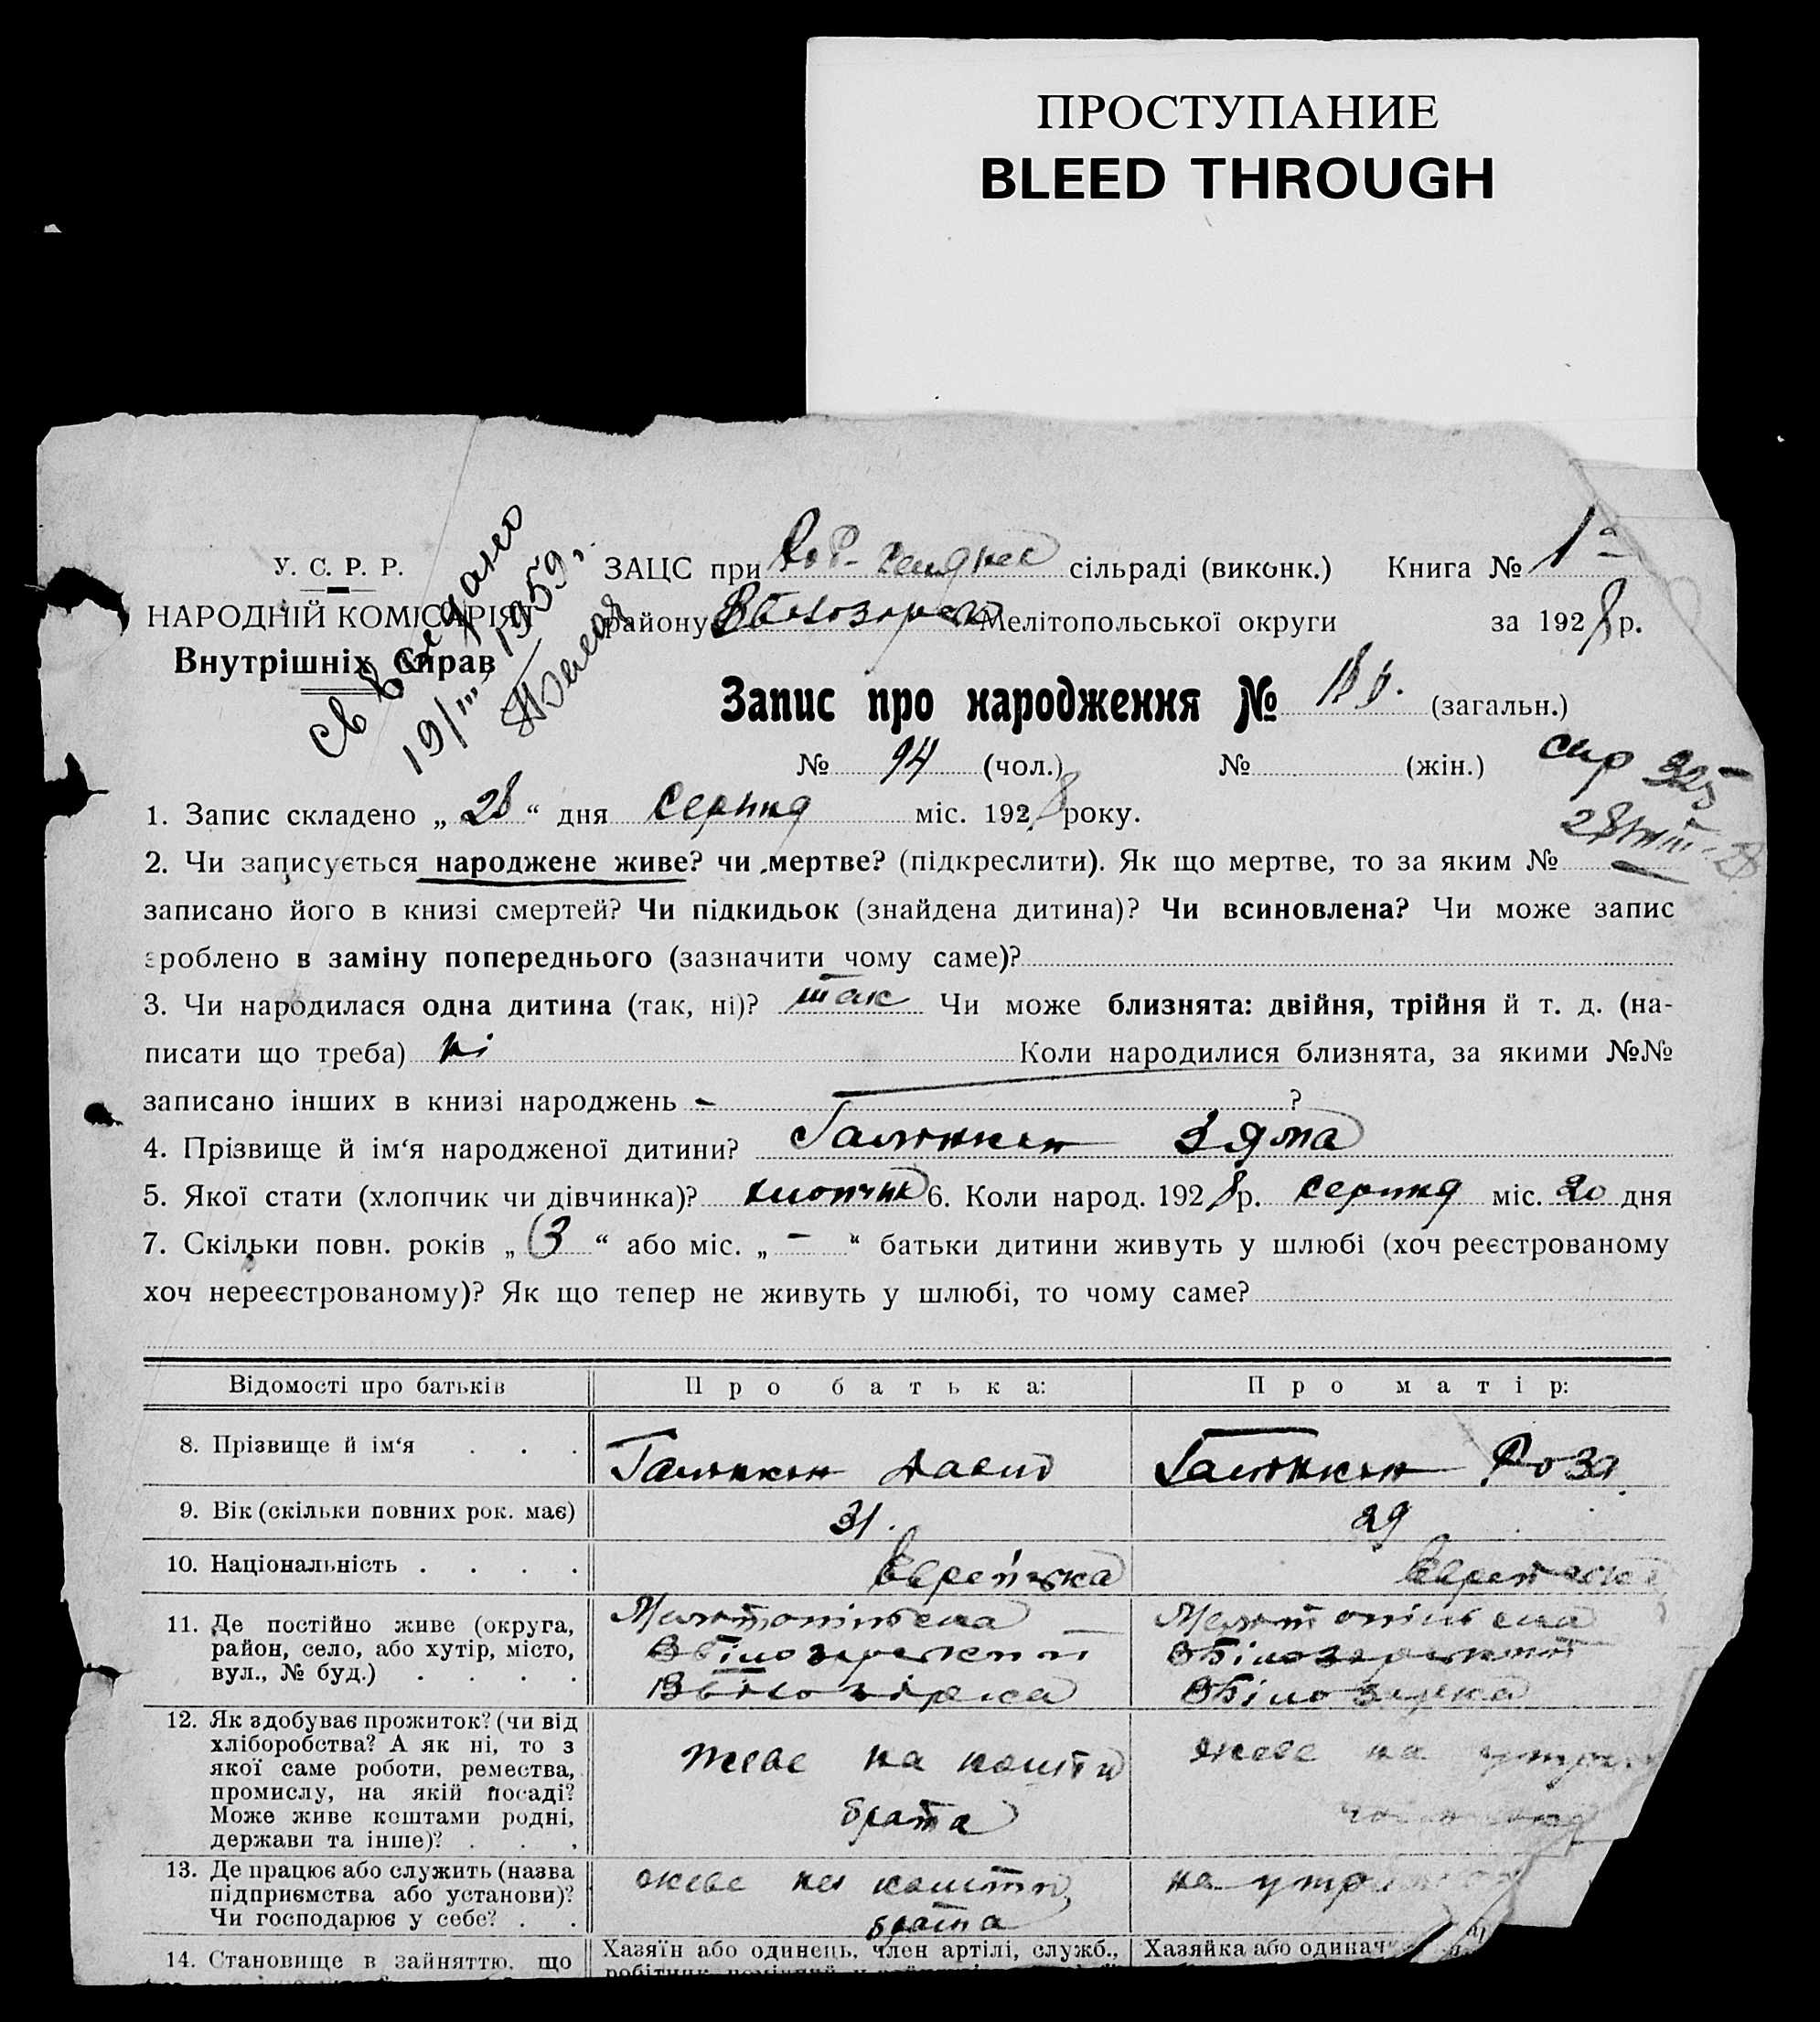 ПРОСТУПАНИЕ
BLEED THROUGH
У. С. Р. Р.
НАРОДНІЙ КОМІСАРІЯТ
Внутрішніх Справ
19/III 1959
ЗАЦС при сільраді (виконк.) Книга № 1а
району Мелітопольської округи за 1928 р.
Запис про народження № (загальн.)
№ 94 (чол.) № (жін.)
1. Запис складено „ 28 “ дня Серпня міс. 1928 року.
2. Чи записується народжене живе? чи мертве? (підкреслити). Як що мертве, то за яким № —
записано його в книзі смертей? Чи підкидьок (знайдена дитина)? Чи всиновлена? Чи може запис
зроблено в заміну попереднього (зазначити чому саме)?
3. Чи народилася одна дитина (так, ні)? так Чи може близнята: двійня, трійня й т. д. (на-
писати що треба) ні Коли народилися близнята, за якими №№
записано інших в книзі народжень - ?
4. Прізвище й ім‘я народженої дитини? Зяма
5. Якої стати (хлопчик чи дівчинка)? хлопчик 6. Коли народ. 1928 р. серпня міс. 20 дня
7. Скільки повн. років „ 3 “ або міс. „ - “ батьки дитини живуть у шлюбі (хоч реєстрованому
хоч нереєстрованому)? Як що тепер не живуть у шлюбі, то чому саме?
Відомості про батьків Про батька: Про матір:
8. Прізвище й ім‘я . . . Давид Роза
9. Вік (скільки повних рок. має) 31. 29
10. Національність . . . . Єврейська Єврейська
11. Де постійно живе (округа,
район, село, або хутір, місто,
вул., № буд.) . . . .
Мелітопільська
Вбілозерський
Вбілозірка
Мелітопільська
Вбілозерський
Вбілозірка
12. Як здобуває прожиток? (чи від
хліборобства? А як ні, то з
якої саме роботи, ремества,
промислу, на якій посаді?
Може живе коштами родні,
держави та інше)? . . .
живе на кошти
брата
живе на
13. Де працює або служить (назва
підприємства або установи)?
Чи господарює у себе? . .
живе на кошти
брата
на
14. Становище в зайняттю, що
Хазяїн або одинець, член артілі, служб.,
Хазяйка або одинач